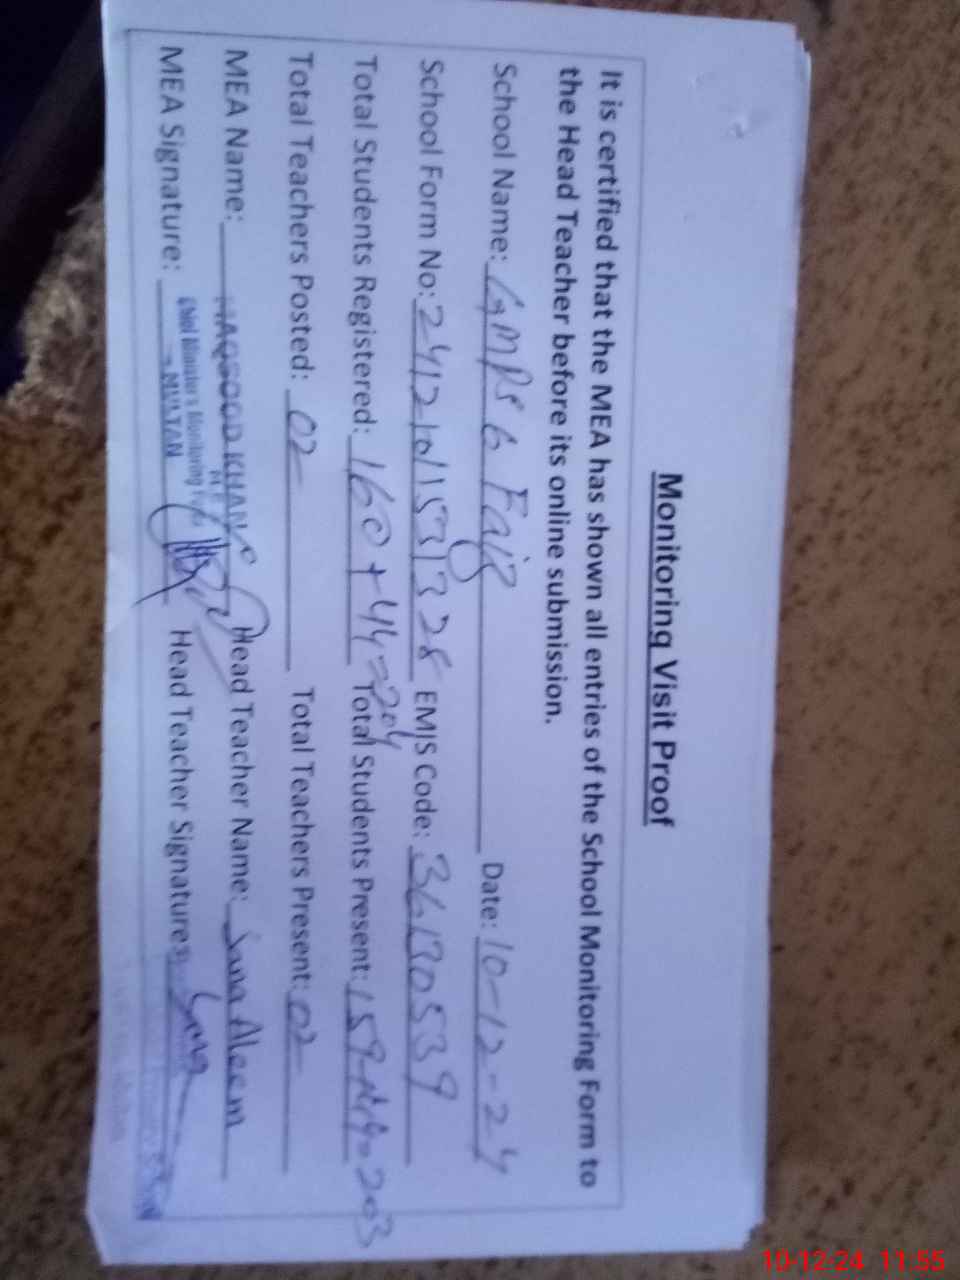 Monitoring Visit Proof
It is certified that the MEA has shown all entries of the School Monitoring Form to
the Head Teacher before its online submission.
School Name: GMPS 6 Faiz Date: 10-12-24
School Form No: 24121011531328 EMIS Code: 36130539
Total Students Registered: 160+44=204 Total Students Present: 159+44=203
Total Teachers Posted: 02 Total Teachers Present: 02
MEA Name: MAQSOOD KHAN Head Teacher Name: Sana Aleem
M.E.A
Chief Minister's Monitoring Force
MULTAN
MEA Signature: Head Teacher Signatures: Sana
10-12-24 11:55